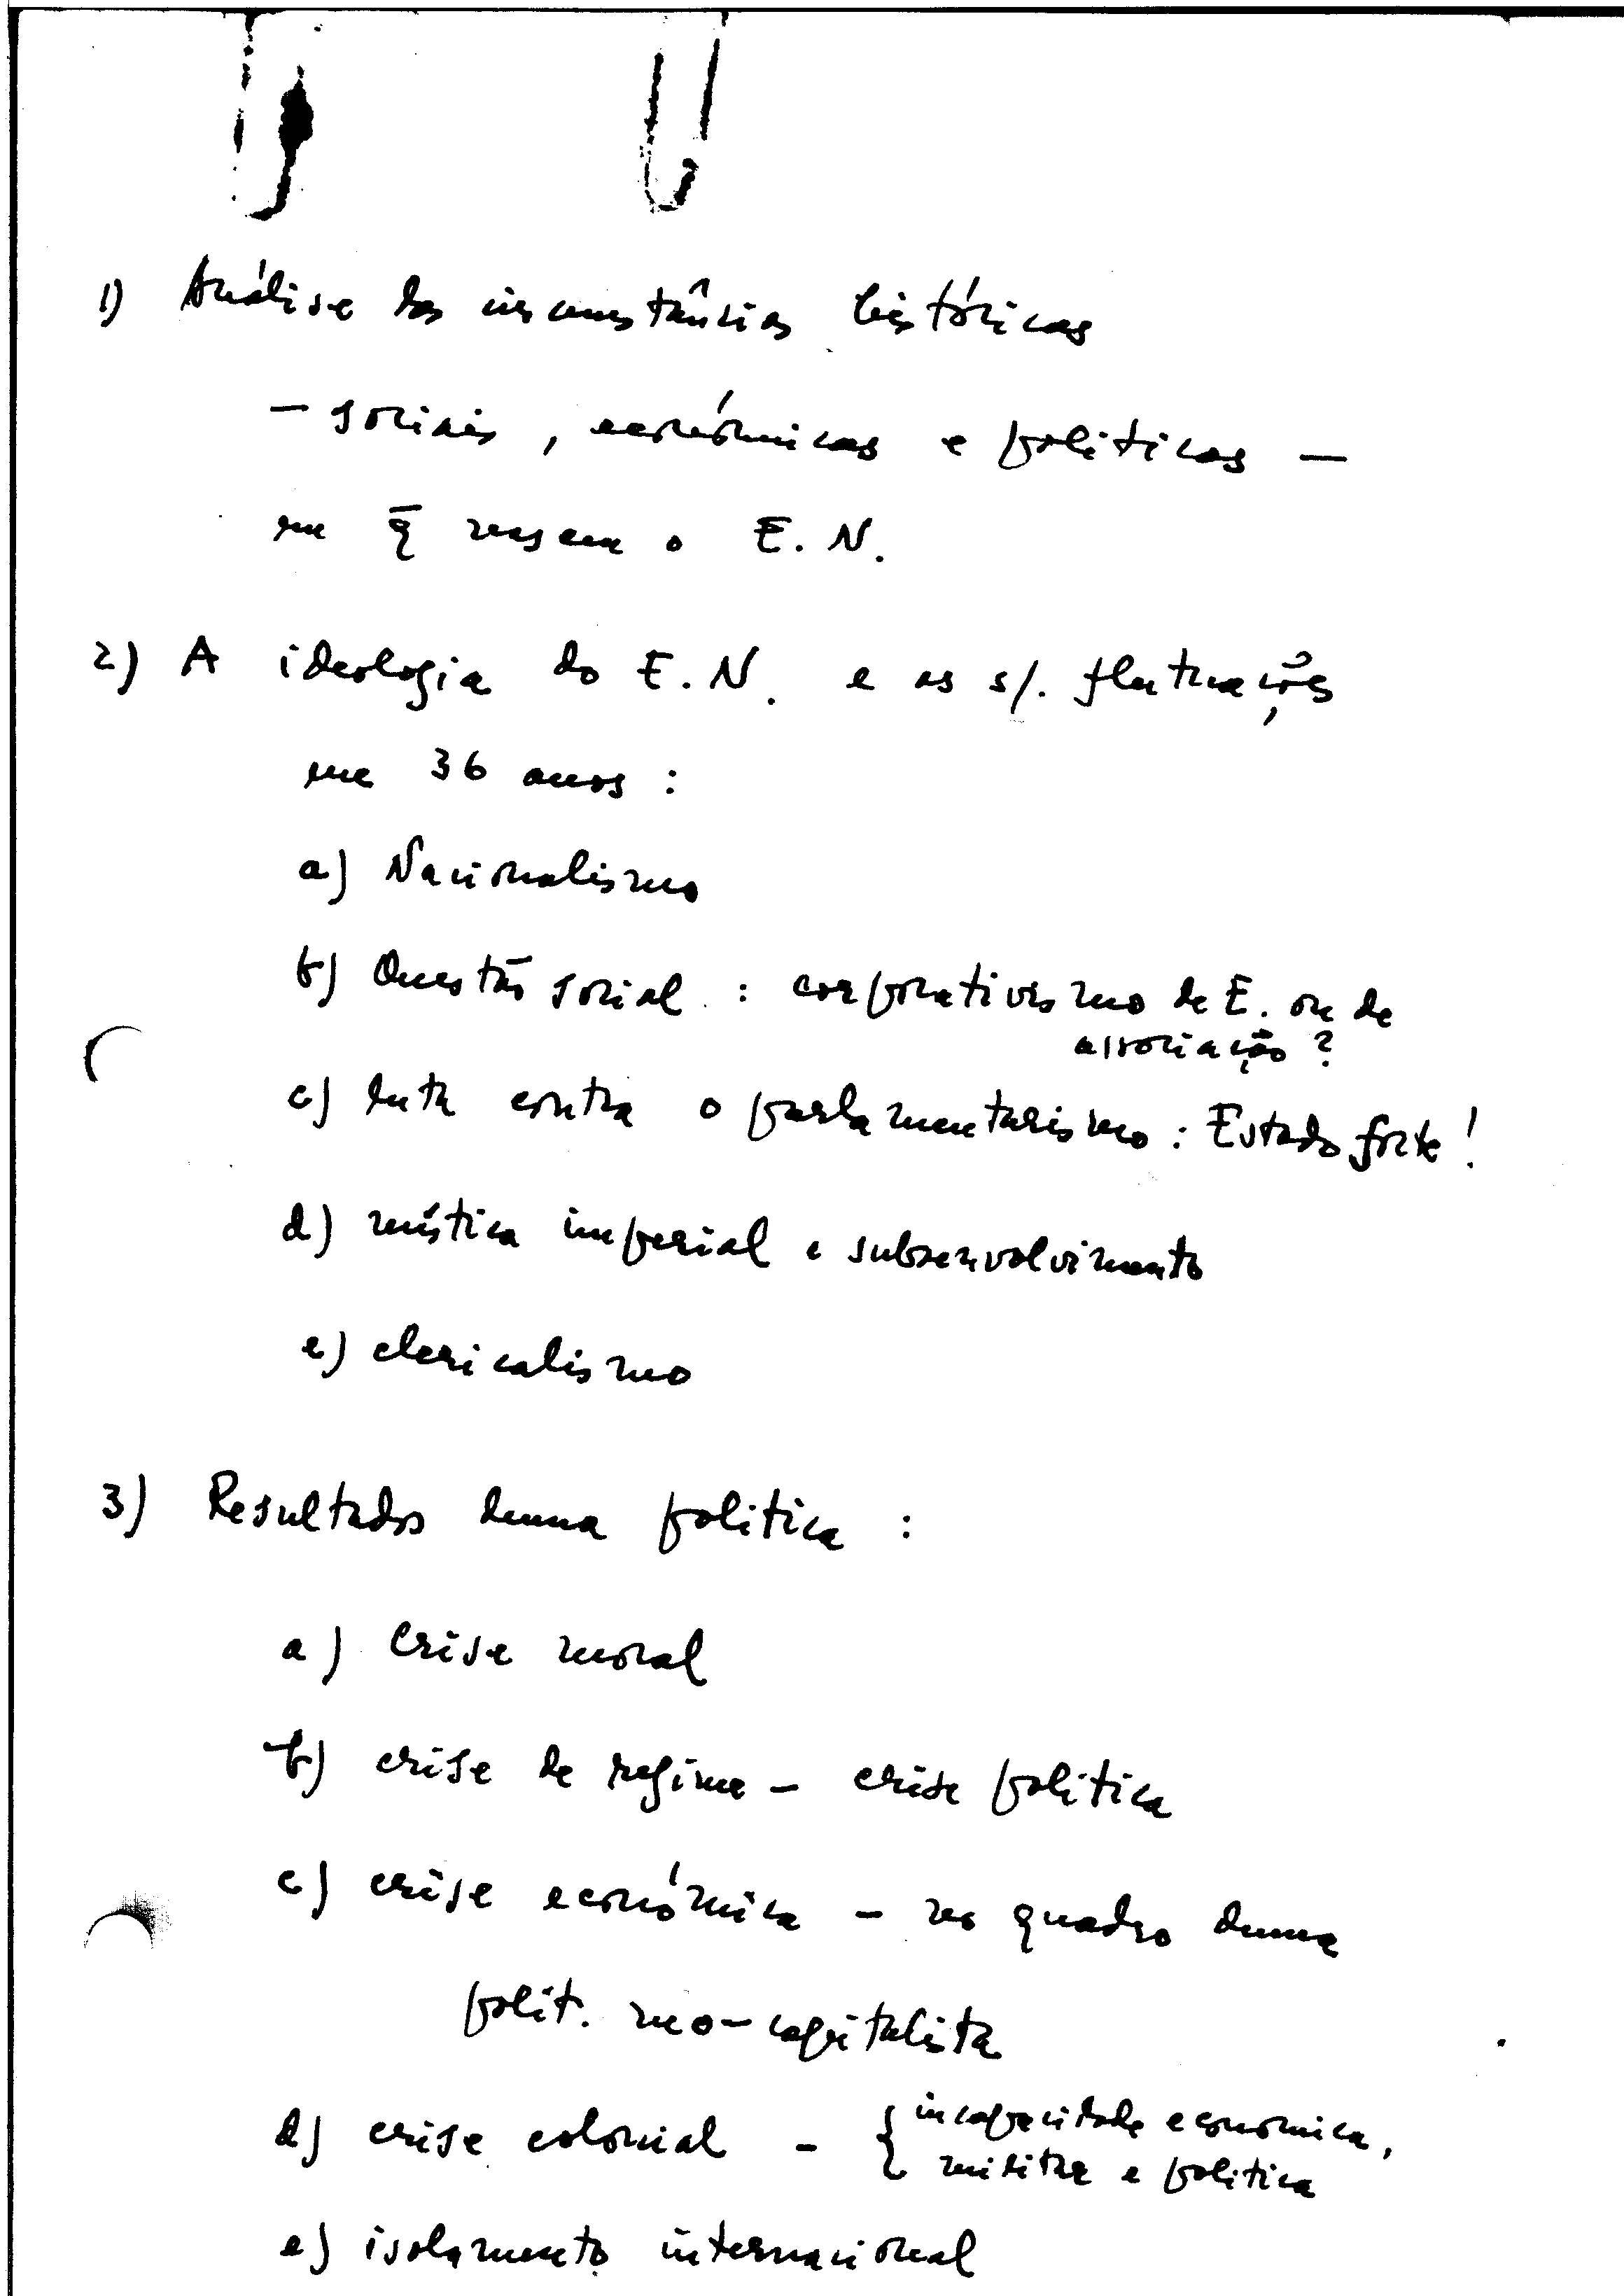 1) Análise das circunstâncias históricas
— sociais, económicas e politicas —
em q̄ nasceu o E.N.
2) A ideologia do E.N. e as s/. flutuações
em 36 anos :
a) Nacionalismo
b) Questão social : corporativismo de E. ou de
associação ?
c) luta contra o parlamentarismo : Estado forte !
d) mística imperial e subsenvolvimento
e) clericalismo
3) Resultados duma politica :
a) Crise moral
b) crise de regime – crise politica
c) crise económica – no quadro duma
polit. neo-capitalista
d) crise colonial – { incapacidade economica,
militar e politica
e) isolamento internacional